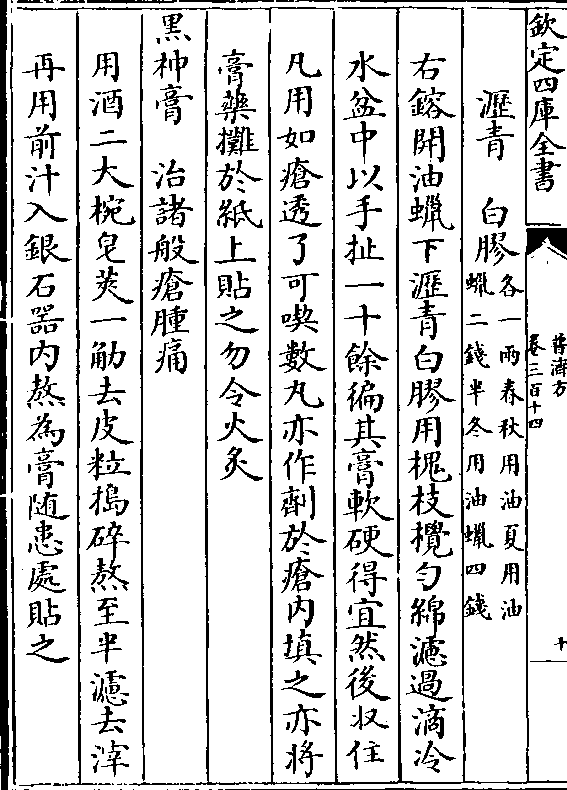 欽定四庫全書
普濟方
卷三百十四
十
瀝青　白膠各一兩春秋用油夏用油
蠟二錢半冬用油蠟四錢
右鎔開油蠟下瀝青白膠用槐枝攪勻綿濾過滴冷
水盆中以手扯一十餘徧其膏軟硬得宜然後収住
凡用如瘡透了可喫數丸亦作劑於瘡内填之亦將
膏藥攤於紙上貼之勿令火炙
黑神膏　治諸般瘡腫痛
用酒二大椀皂莢一觔去皮粒搗碎熬至半濾去滓
再用前汁入銀石器内熬為膏随患處貼之